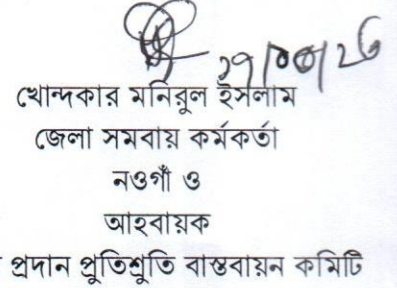 খোন্দকার মনিরুল ইসলাম
জেলা সমবায় কর্মকর্তা
নওগাঁ ও
আহবায়ক
প্রদান প্রুতিশ্রুতি বাস্তবায়ন কমিটি